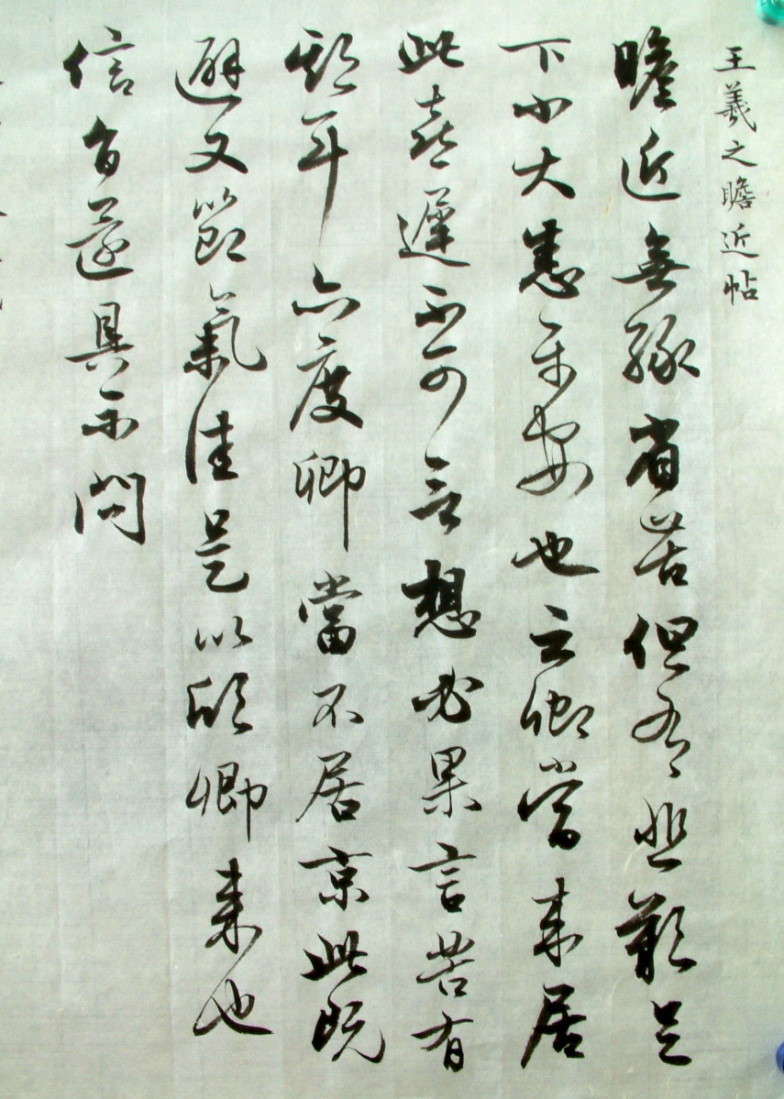 王羲之瞻近帖
瞻近無緣省苦但有悲歎足
下小大悉平安也云卿當來居
此喜遲不可言想必果言苦有
期耳亦度卿當不居京此既
避又節氣佳是以欣卿來也
信旨還具示問